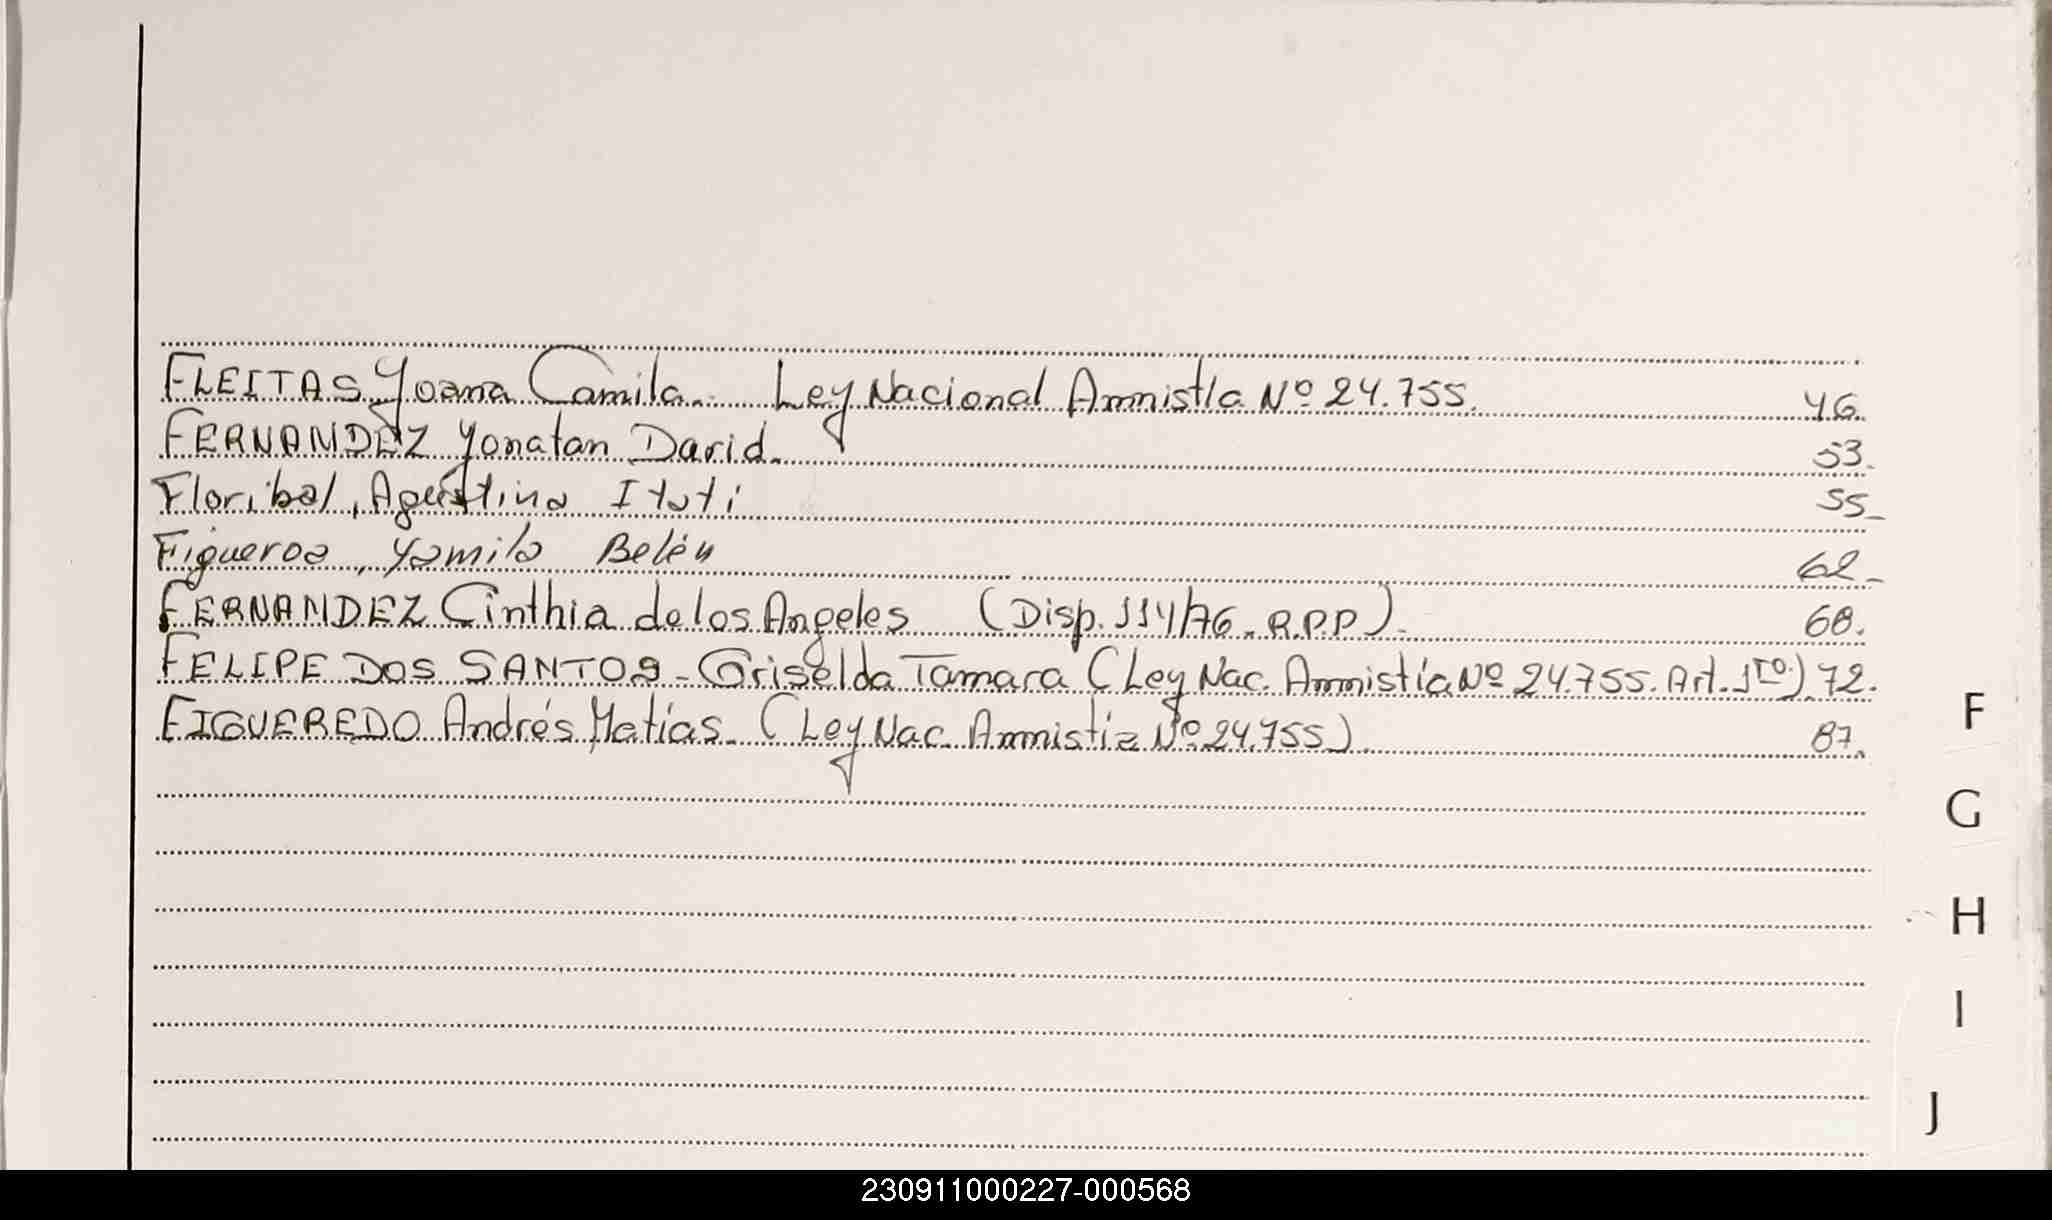 FLEITAS Yoana Camila. Ley Nacional Amnistía Nº 24.755. 46.
FERNANDEZ Yonatan David. 53.
Floribal, Agustina Itatí 55_
Figueroa, Yamila Belén 62_
FERNANDEZ Cinthia de los Angeles (Disp. 114/76. R.P.P). 68.
FELIPE DOS SANTOS - Griselda Tamara (Ley Nac. Amnistía Nº 24.755. Art. 1ro.) 72.
FIGUEREDO Andrés Matías. (Ley Nac. Amnistía Nº 24.755) 87.
F
G
H
I
J
230911000227-000568